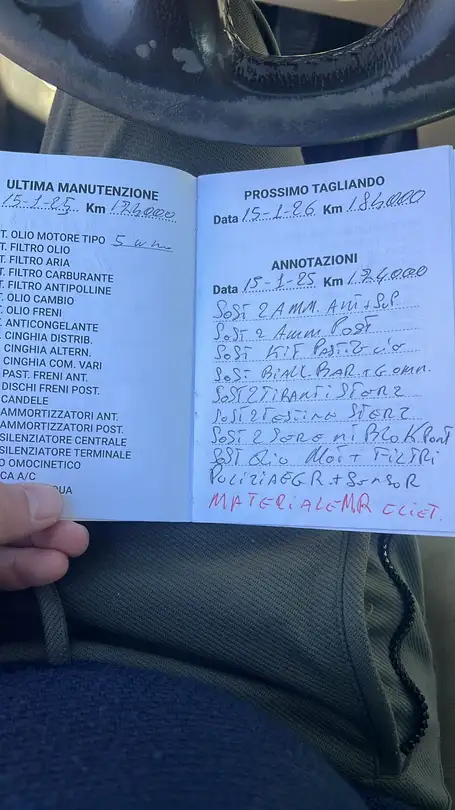 ULTIMA MANUTENZIONE
15-1-25 Km 174000
T. OLIO MOTORE TIPO 5 w
T. FILTRO OLIO
T. FILTRO ARIA
T. FILTRO CARBURANTE
T. FILTRO ANTIPOLLINE
T. OLIO CAMBIO
T. OLIO FRENI
T. ANTICONGELANTE
CINGHIA DISTRIB.
CINGHIA ALTERN.
CINGHIA COM. VARI
PAST. FRENI ANT.
DISCHI FRENI POST.
CANDELE
AMMORTIZZATORI ANT.
AMMORTIZZATORI POST.
SILENZIATORE CENTRALE
SILENZIATORE TERMINALE
O OMOCINETICO
CA A/C
QUA
PROSSIMO TAGLIANDO
Data 15-1-26 Km 184000
ANNOTAZIONI
Data 15-1-25 Km 174000
SOST 2 AMM. ANT + SUP
SOST 2 AMM POST
SOST KIT
SOST BIALL BAR + GOMM.
SOST 2 TIRANTI STERZ
SOST 2 TESTINE STERZ
SOST 2
SOST OLIO MOT + FILTRI
PULIZIA EGR + SENSOR
MATERIALE MR CLIET.